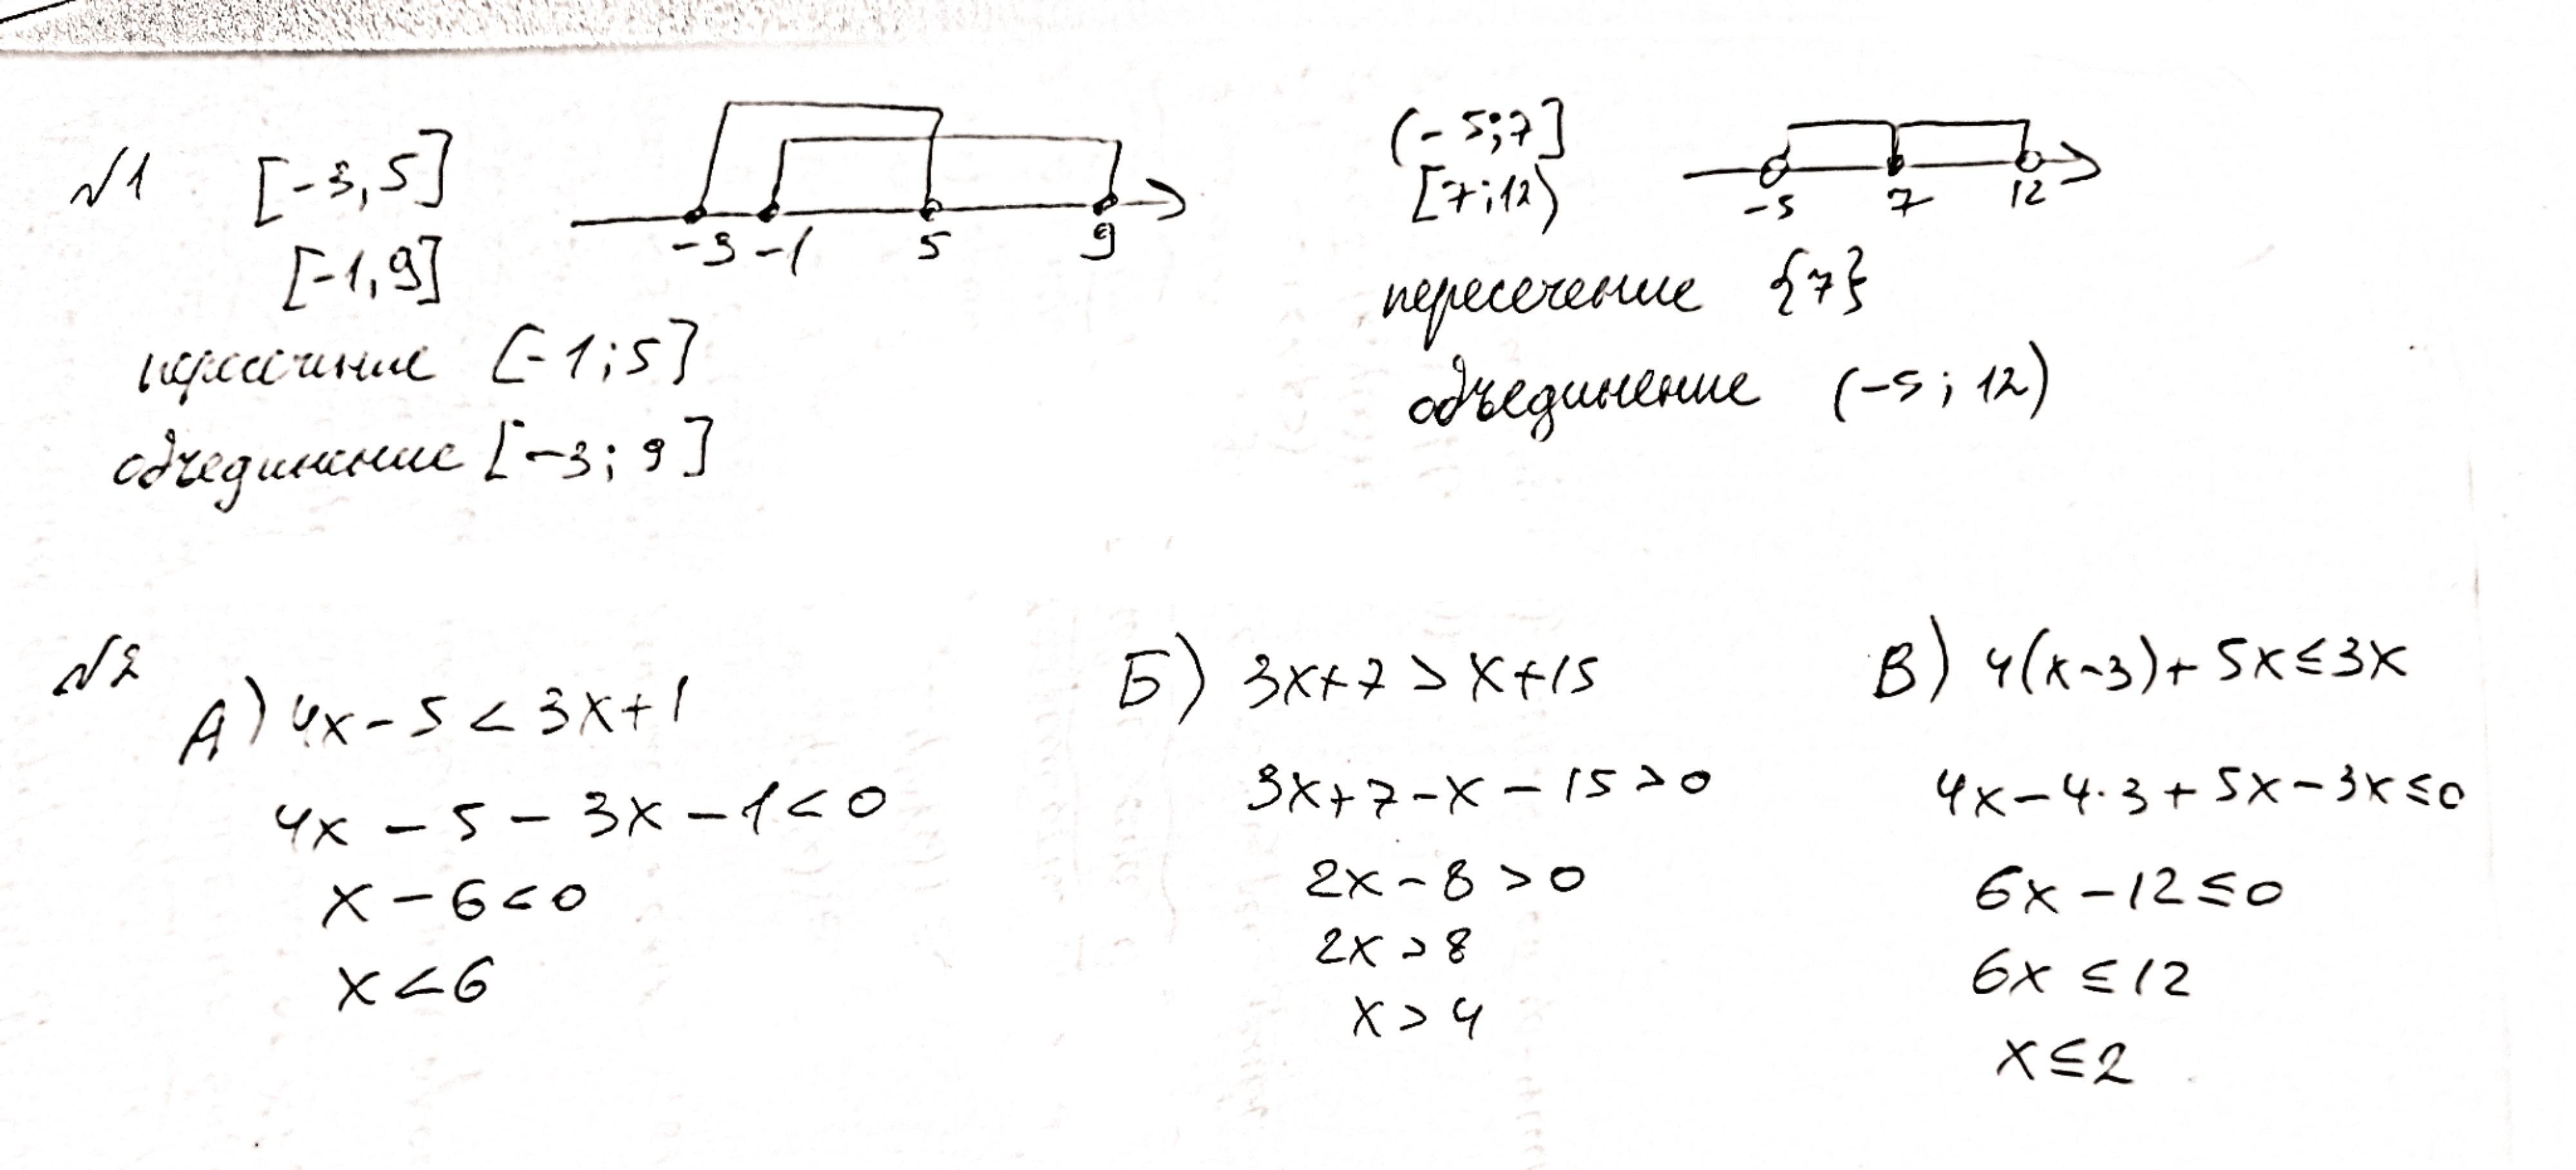 №1 [-3,5]
[-1,9]
-3 -1 5 9
пересечение [-1;5]
объединение [-3;9]
(-5;7]
[7;12)
-5 7 12
пересечение {7}
объединение (-5;12)
№2
А) 4x-5<3x+1
4x-5-3x-1<0
x-6<0
x<6
Б) 3x+7>x+15
3x+7-x-15>0
2x-8>0
2x>8
x>4
В) 4(x-3)+5x≤3x
4x-4·3+5x-3x≤0
6x-12≤0
6x≤12
x≤2